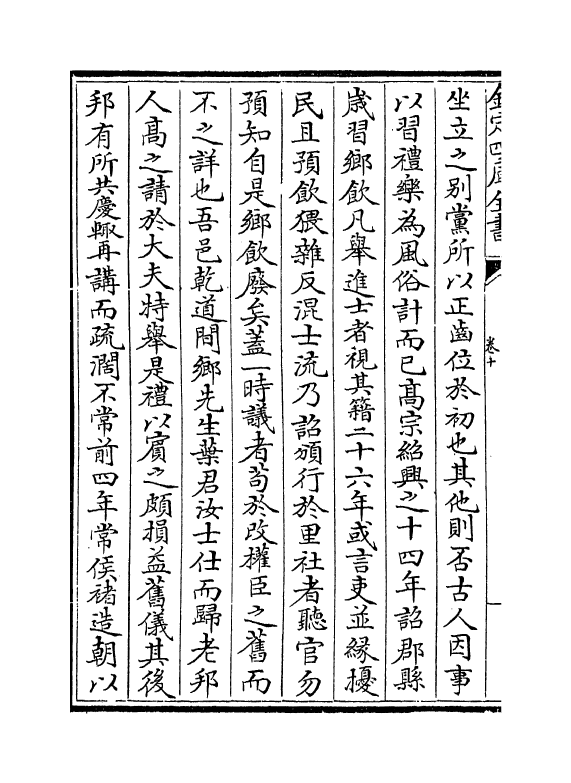 欽定四庫全書
卷十
坐立之别黨所以正齒位於初也其他則否古人因事
以習禮樂為風俗計而已髙宗紹興之十四年詔郡縣
歳習鄉飲凡舉進士者視其籍二十六年或言吏並縁擾
民且預飲猥雜反混士流乃詔頒行於里社者聽官勿
預知自是鄉飲廢矣蓋一時議者茍於改權臣之舊而
不之詳也吾邑乾道間鄉先生葉君汝士仕而歸老邦
人髙之請於大夫特舉是禮以賔之頗損益舊儀其後
邦有所共慶輙再講而疏濶不常前四年常侯禇造朝以